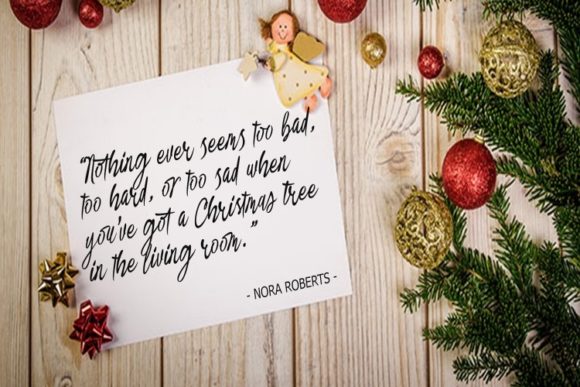 “Nothing ever seems too bad,
too hard, or too sad when
you’ve got a Christmas tree
in the living room.”
- NORA ROBERTS -